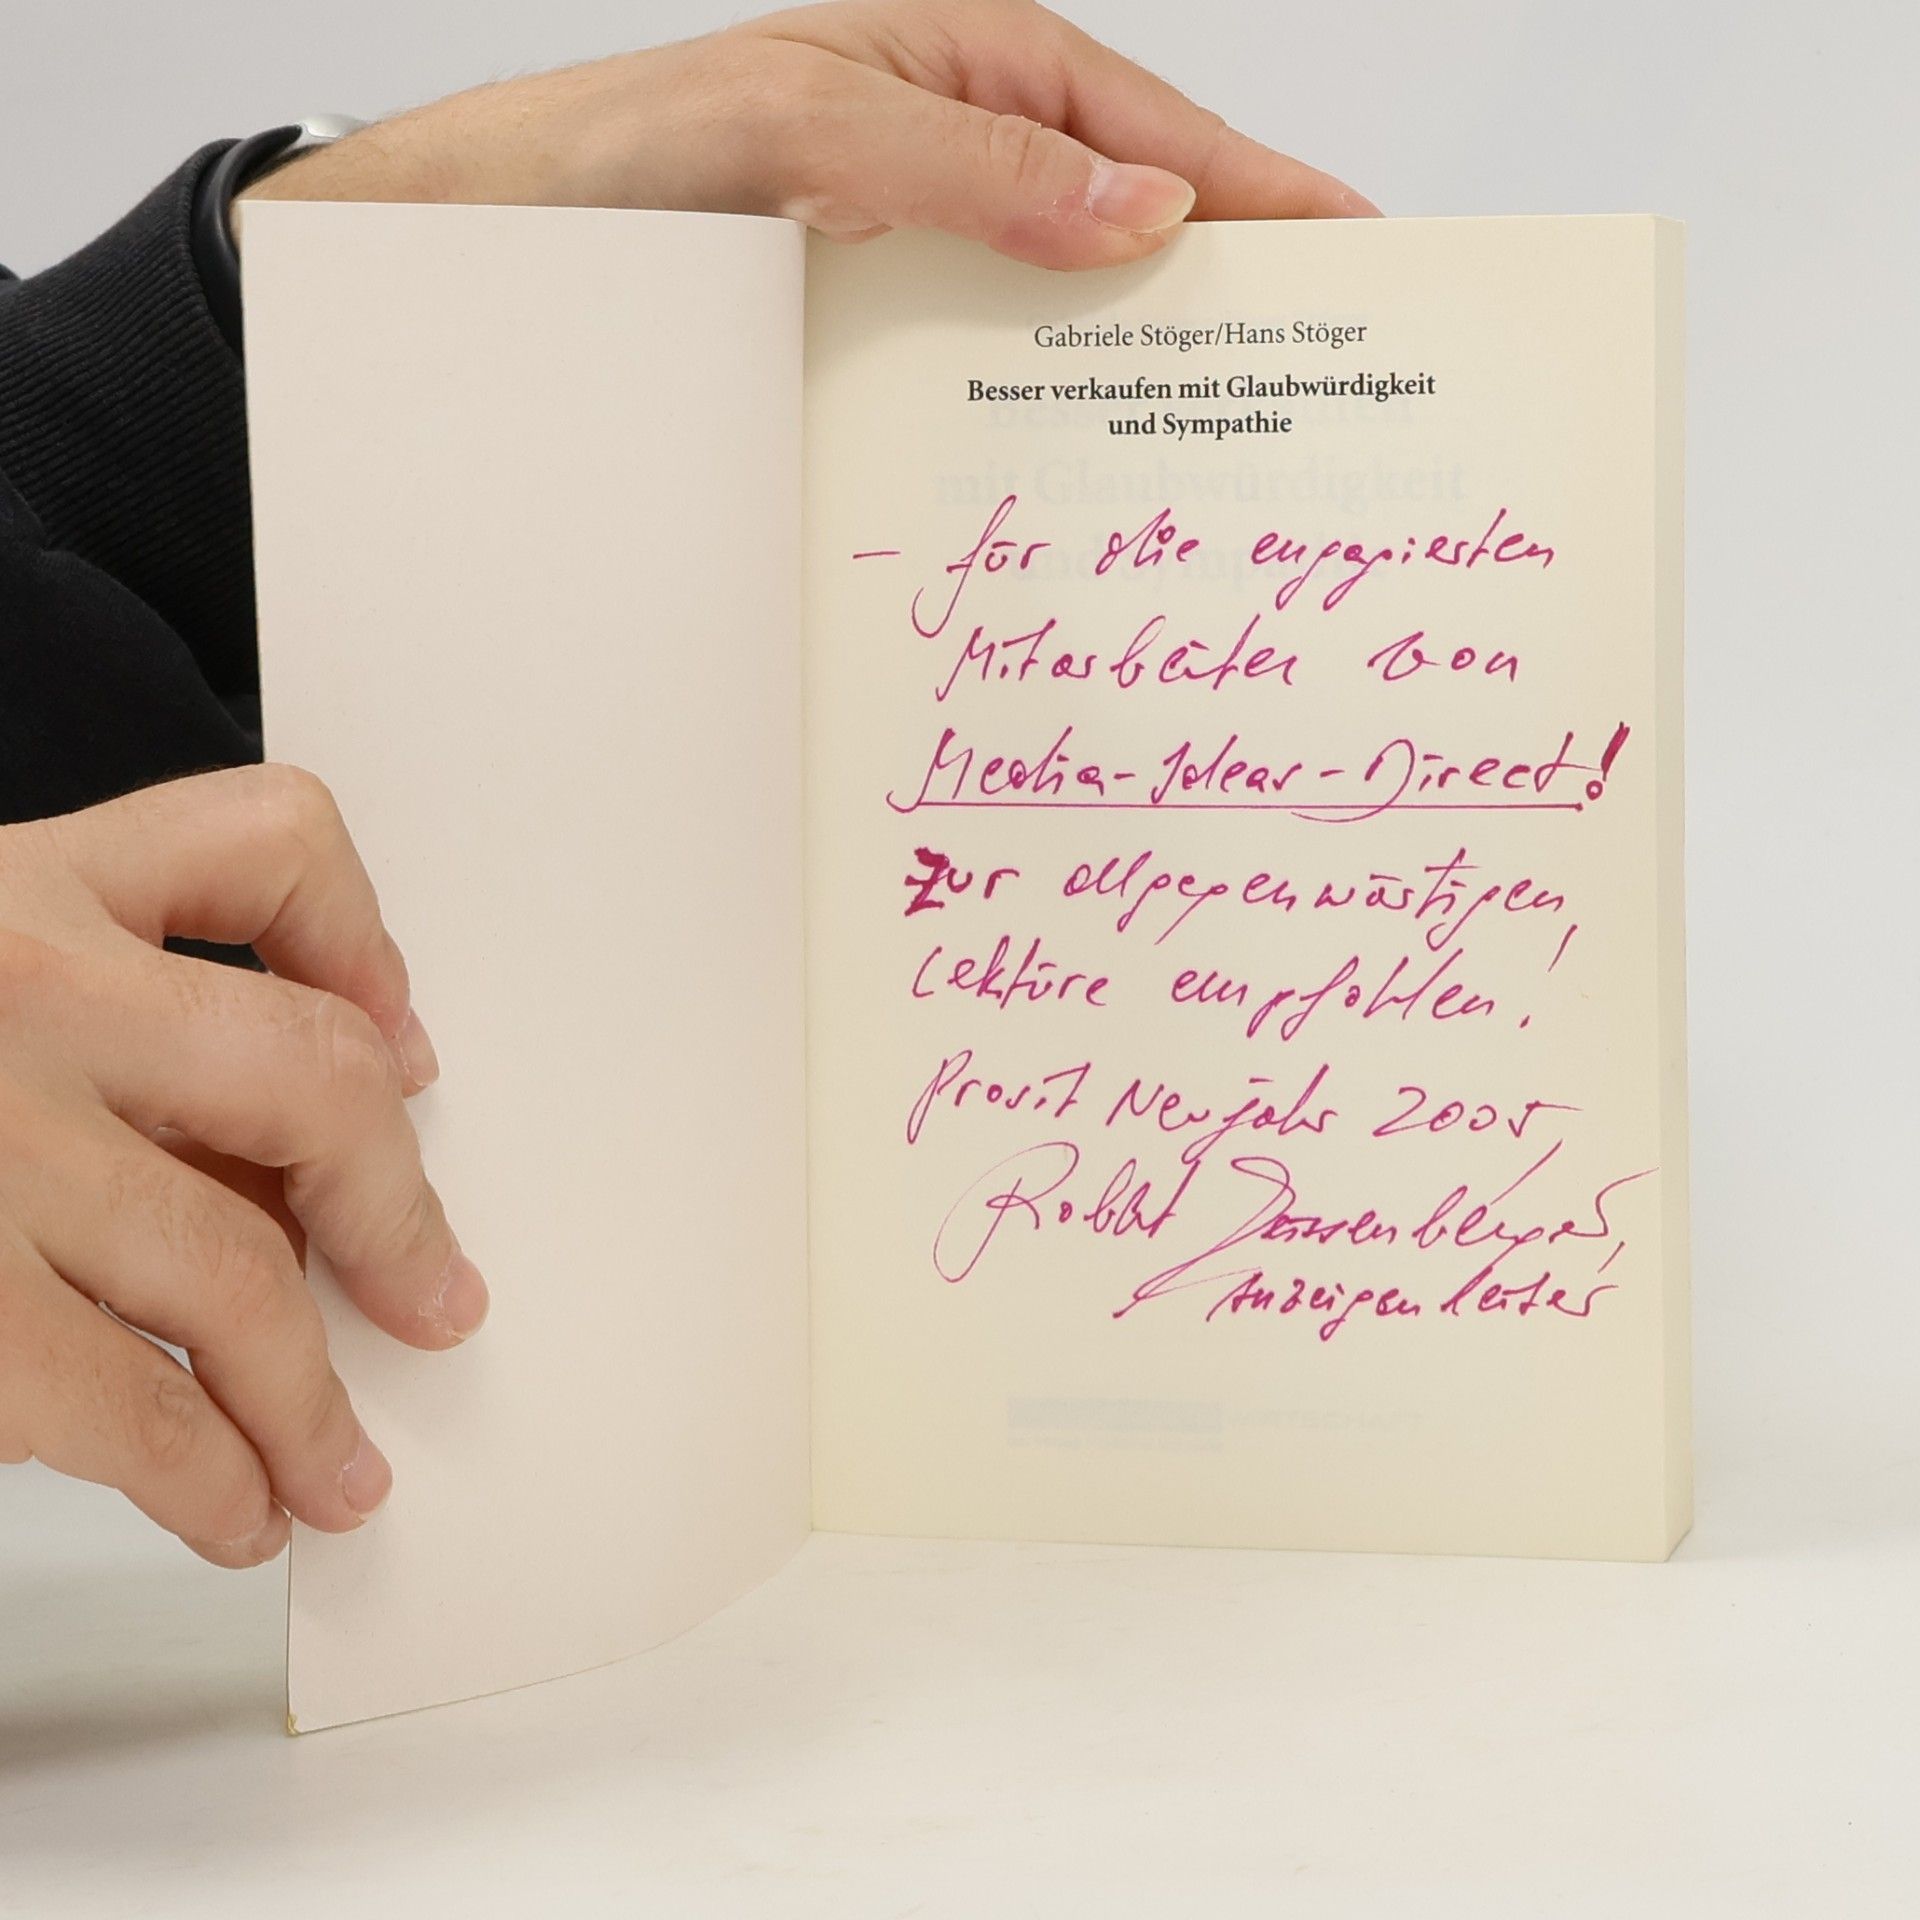 Gabriele Stöger/Hans Stöger
Besser verkaufen mit Glaubwürdigkeit
und Sympathie
– für die engagierten
Mitarbeiter von
Media-Ideas-Direct!
Zur allgegenwärtigen,
Lektüre empfohlen!
Prosit Neujahr 2005,
Robert
Anzeigenleiter